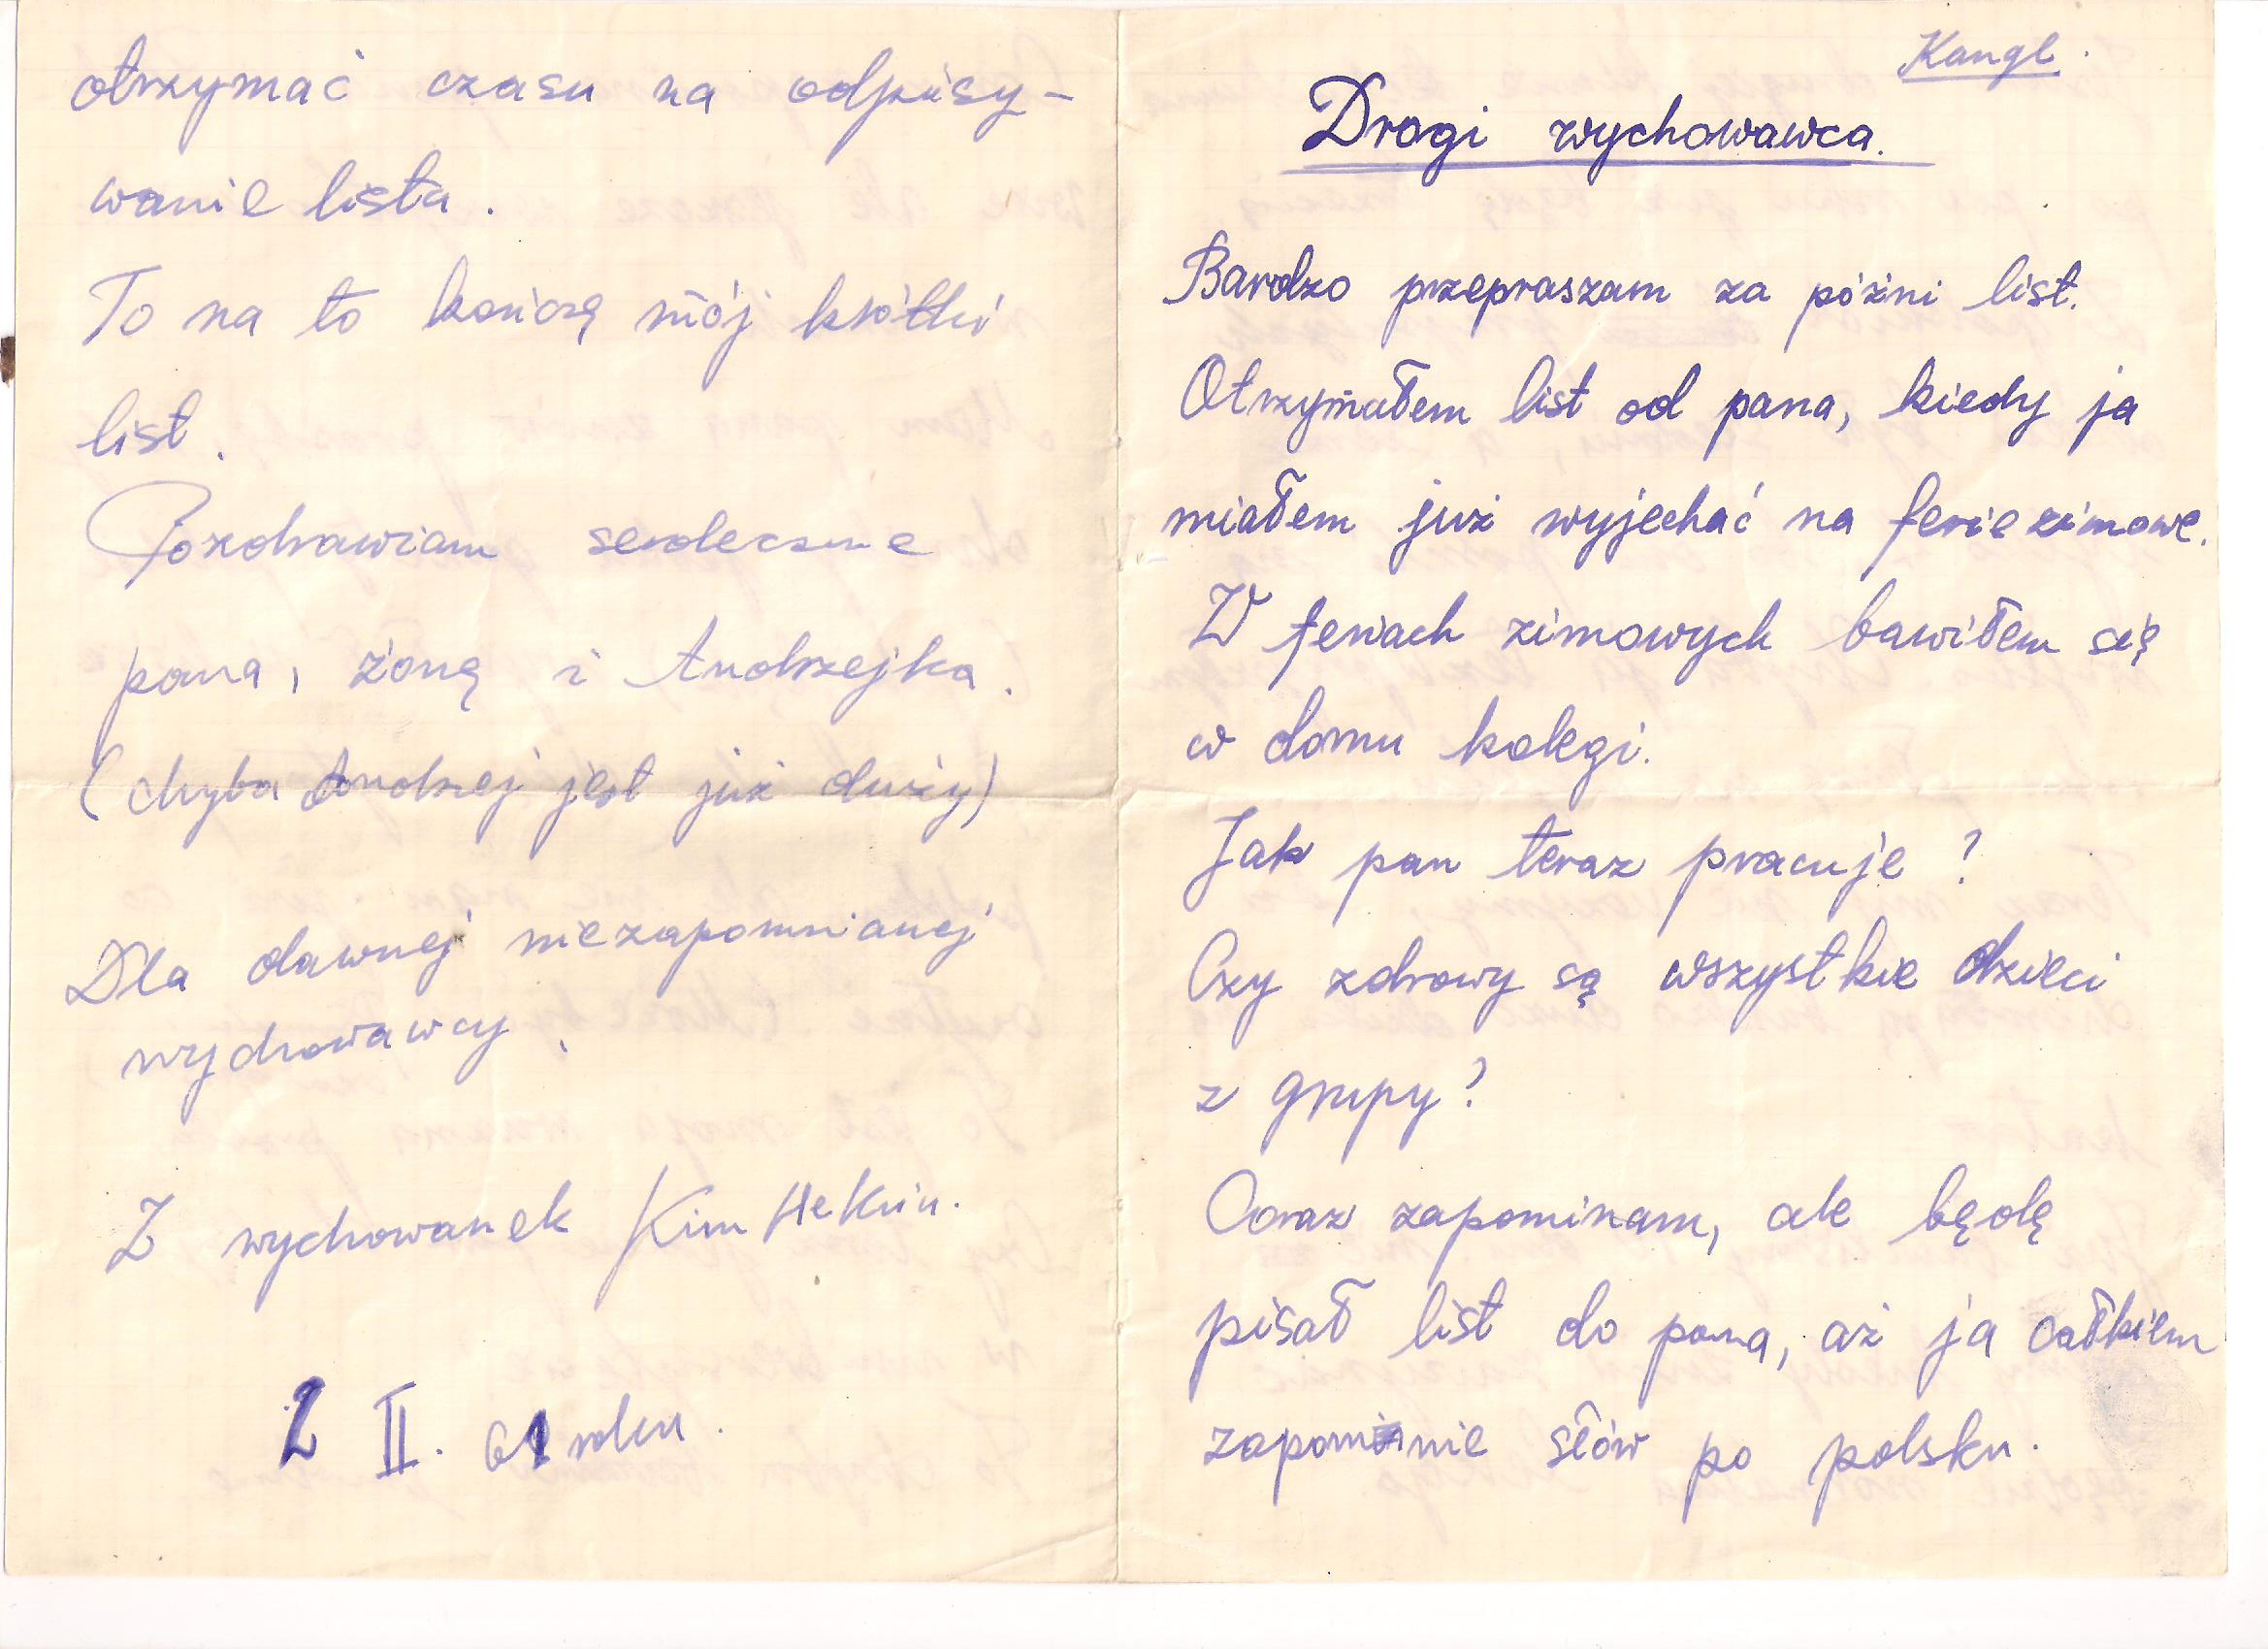 Drogi wychowawca.
Bardzo przepraszam za póżni list.
Otrzymałem list od pana, kiedy ja
miałem już wyjechać na ferie zimowe.
W feriach zimowych bawiłem się
w domu kolegi.
Jak pan teraz pracuje ?
Czy zdrowy są wszystkie dzieci
z grupy?
Coraz zapominam, ale będę
pisał list do pana, aż ja całkiem
zapomnie słów po polsku.
otrzymać czasu na odpisy-
wanie lista.
To na to kończę mój krótki
list.
Pozdrawiam serdecznie
pana, żonę i Andrzejka.
(chyba Andrzej jest już duży)
Dla dawnej niezapomnianej
wychowawcy.
Z wychowanek Kim
2 II. 61 roku.